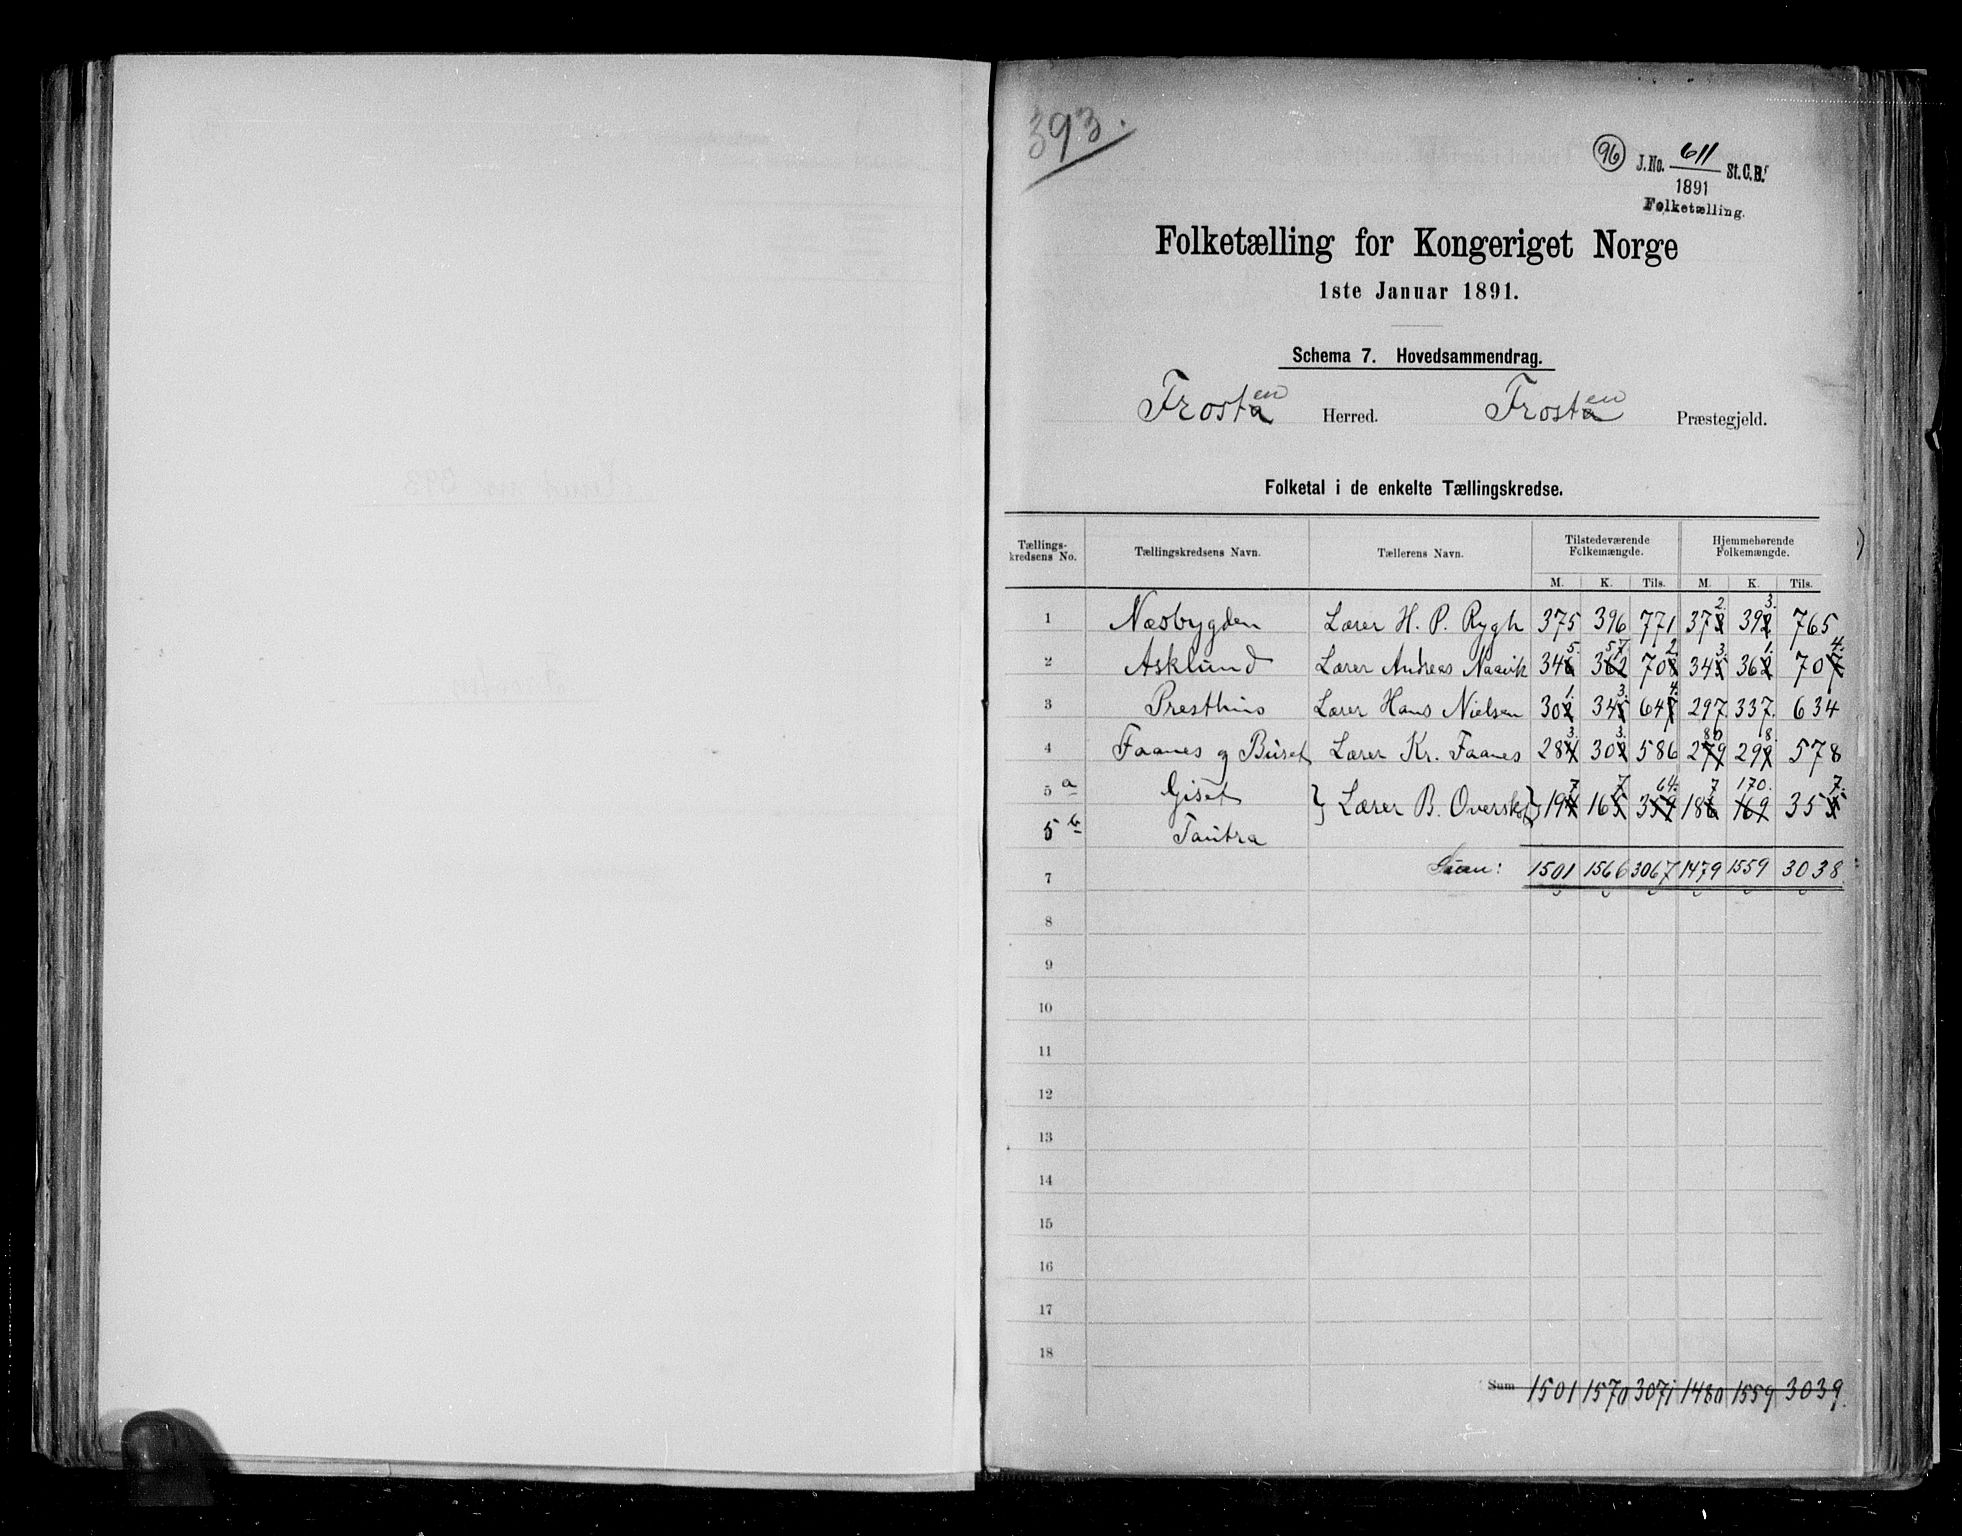 393.
96 J.No. 611 St.C.B.
1891
Folketælling.
Folketælling for Kongeriget Norge
1ste Januar 1891.
Schema 7. Hovedsammendrag.
Frostaen Herred. Frostaen Præstegjeld.
Folketal i de enkelte Tællingskredse.
Tællingskredsens No. Tællingskredsens Navn. Tællerens Navn. Tilstedeværende Folkemængde. Hjemmehørende Folkemængde.
M. K. Tils. M. K. Tils.
2. 3.
1 Næsbygden Lærer H. P. Rygh 375 396 771 373 392 765
5. 57. 2. 3. 1. 4.
2 Asklund Lærer Andreas Naavik 346 362 708 345 362 707
1. 3. 4.
3 Presthus Lærer Hans Nielsen 302 345 647 297 337 634
3. 3. 80 8.
4 Faanes og Buset Lærer Kr. Faanes 284 302 586 279 299 578
7 7 64. 7 170. 7.
5 a Giset } Lærer B. Overskot } 194 165 359 186 169 355
5 b Tautra
7 Sum: 1501 1566 3067 1479 1559 3038
8
9
10
11
12
13
14
15
16
17
18
Sum 1501 1570 3071 1480 1559 3039